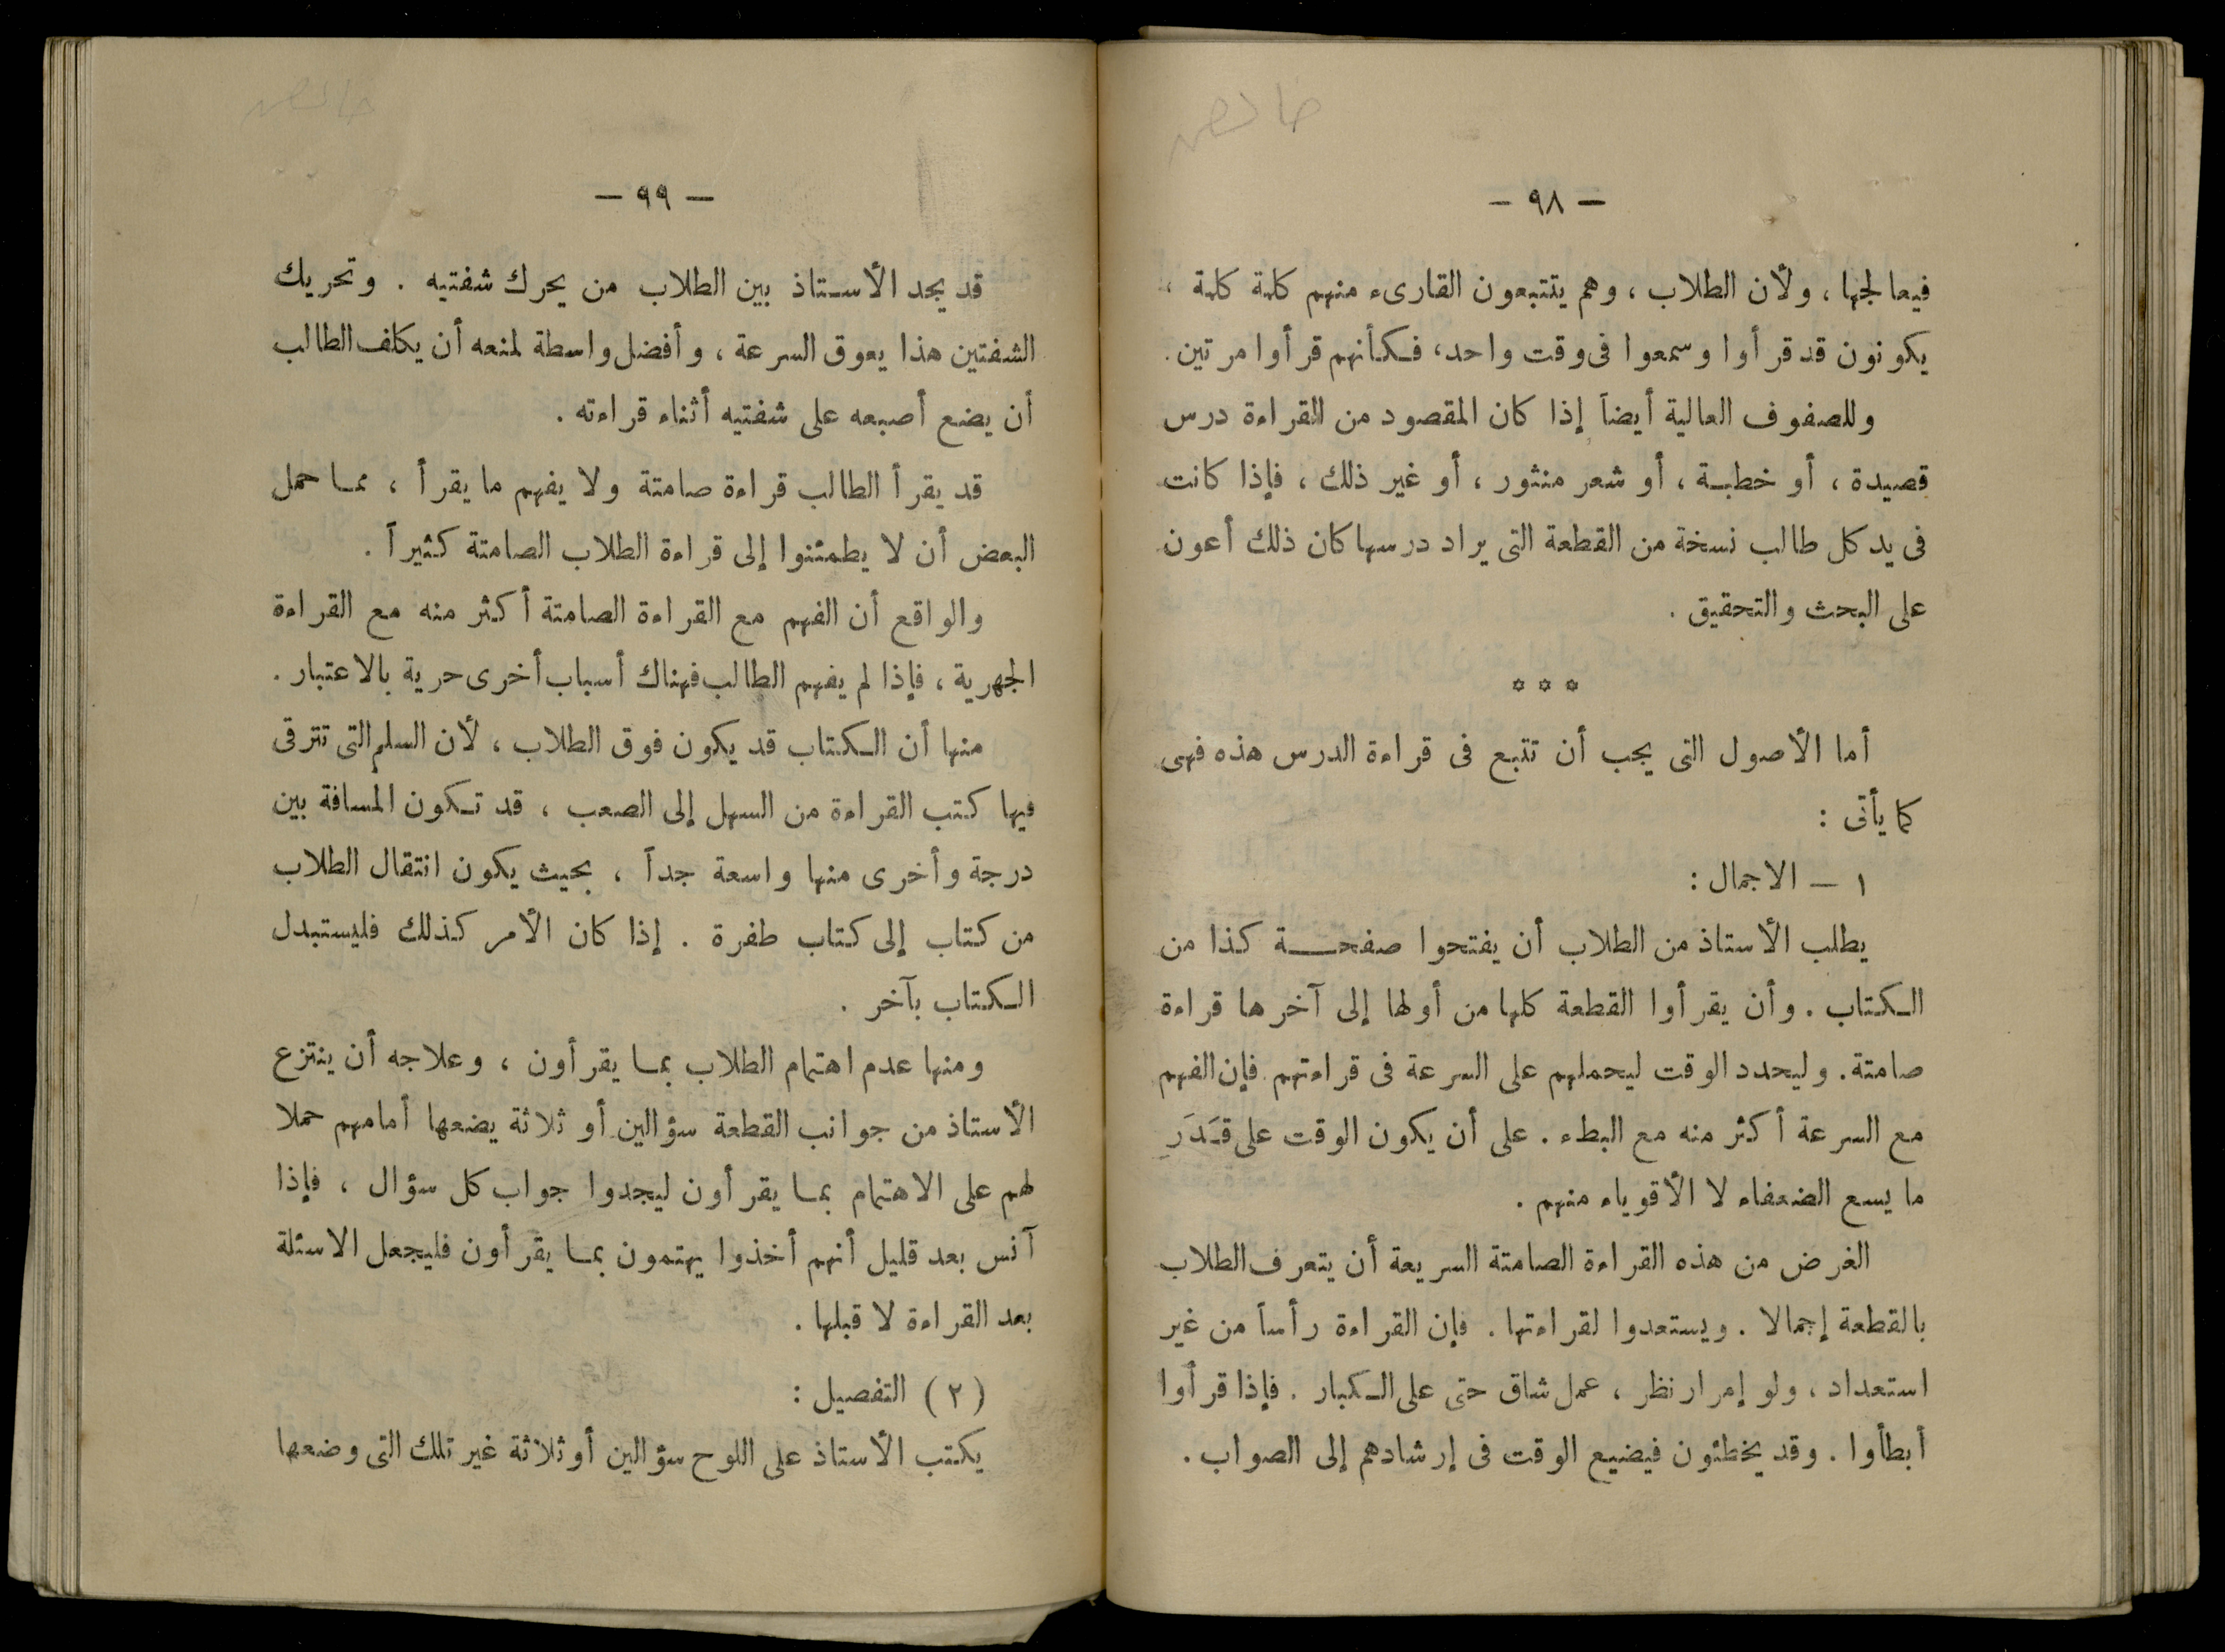 — ٩٨ —
فيعالجها ، ولأن الطلاب ، وهم يتتبعون القارىء منهم كلمة كلمة ،
يكونون قد قرأوا وسمعوا فى وقت واحد، فكأنهم قرأوا مرتين.
وللصفوف العالية أيضاً إذا كان المقصود من القراءة درس
قصيدة ، أو خطبة ، أو شعر منثور ، أو غير ذلك ، فإذا كانت
فى يد كل طالب نسخة من القطعة التى يراد درسها كان ذلك أعون
على البحث والتحقيق .
✡ ✡ ✡
أما الأصول التى يجب أن تتبع فى قراءة الدرس هذه فهى
كما يأتى :
١ — الاجمال :
يطلب الأستاذ من الطلاب أن يفتحوا صفحة كذا من
الكتاب . وأن يقرأوا القطعة كلها من أولها إلى آخرها قراءة
صامتة. وليحدد الوقت ليحملهم على السرعة فى قراءتهم. فإن الفهم
مع السرعة أكثر منه مع البطء . على أن يكون الوقت على قَدَرِ
ما يسع الضعفاء لا الأقوياء منهم .
الغرض من هذه القراءة الصامتة السريعة أن يتعرف الطلاب
بالقطعة إجمالا . ويستعدوا لقراءتها . فإن القراءة رأساً من غير
استعداد ، ولو إمرار نظر ، عمل شاق حتى على الكبار . فإذا قرأوا
أبطأوا . وقد يخطئون فيضيع الوقت فى إرشادهم إلى الصواب .
— ٩٩ —
قد يجد الأستاذ بين الطلاب من يحرك شفتيه . وتحريك
الشفتين هذا يعوق السرعة ، وأفضل واسطة لمنعه أن يكلف الطالب
أن يضع أصبعه على شفتيه أثناء قراءته .
قد يقرأ الطالب قراءة صامتة ولا يفهم ما يقرأ ، مما حمل
البعض أن لا يطمئنوا إلى قراءة الطلاب الصامتة كثيراً .
والواقع أن الفهم مع القراءة الصامتة أكثر منه مع القراءة
الجهرية ، فإذا لم يفهم الطالب فهناك أسباب أخرى حرية بالاعتبار .
منها أن الكتاب قد يكون فوق الطلاب ، لأن السلم التى تترقى
فيها كتب القراءة من السهل إلى الصعب ، قد تكون المسافة بين
درجة وأخرى منها واسعة جداً ، بحيث يكون انتقال الطلاب
من كتاب إلى كتاب طفرة . إذا كان الأمر كذلك فليستبدل
الكتاب بآخر .
ومنها عدم اهتمام الطلاب بما يقرأون ، وعلاجه أن ينتزع
الأستاذ من جوانب القطعة سؤالين أو ثلاثة يضعها أمامهم حملا
لهم على الاهتمام بما يقرأون ليجدوا جواب كل سؤال ، فإذا
آنس بعد قليل أنهم أخذوا يهتمون بما يقرأون فليجعل الاسئلة
بعد القراءة لا قبلها .
( ٢ ) التفصيل :
يكتب الأستاذ على اللوح سؤالين أو ثلاثة غير تلك التى وضعها